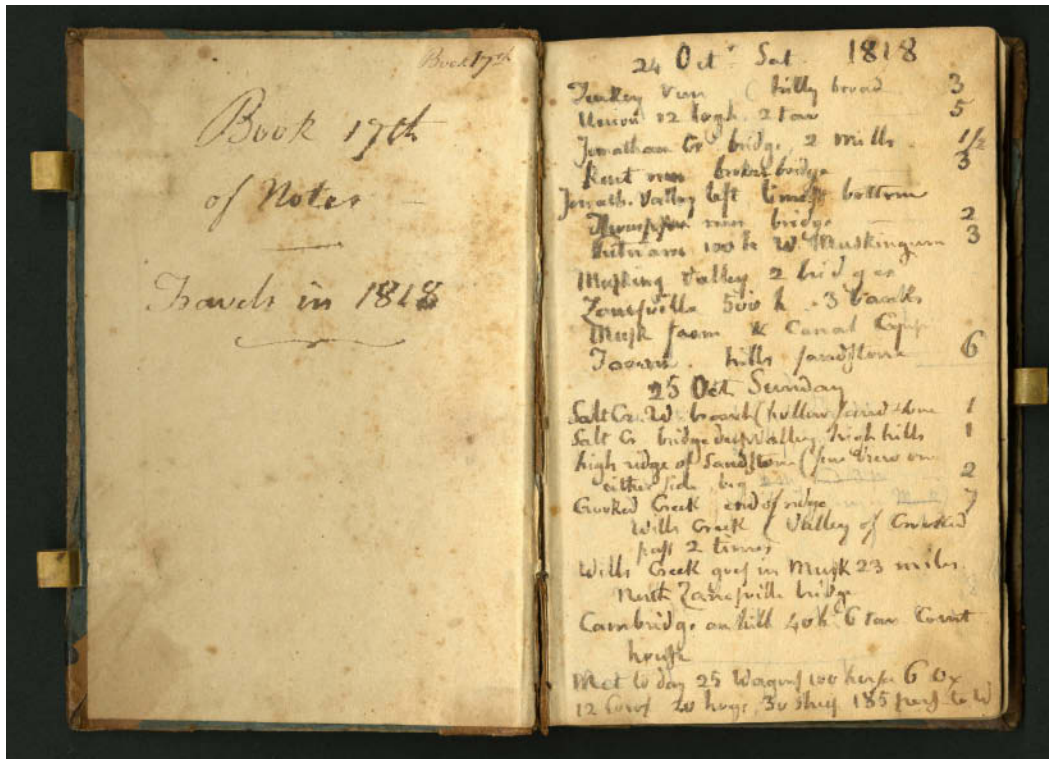 Book 17th
Book 17th
of Notes
Travels in 1818
24 Oct Sat 1818
Turkey run (hilly broad 3
Union 12 logh. 2 tav 5
Jonathan Cr bridge, 2 mills 1/2
Kent run broken bridge 3
Jonath. Valley left limest bottom
Thompson run bridge 2
Putnam 100 h W. Muskingum 3
Musking Valley 2 bridges
Zanesville 500 h. 3 banks
Musk & Canal
Tavern. hills sandstone 6
25 Oct Sunday
Salt Cr. W. branch (hollow sandstone 1
Salt Cr bridge deep valley, high hills 1
high ridge of Sandstone (few trees on 2
either side beg
Crooked Creek end of ridge 7
Wills Creek (Valley of Crooked
pass 2 times
Wills Creek goes in Musk 23 miles
North Zanesville bridge
Cambridge on hill 40 h. 6 tav Court
house
Met to day 25 Wagons 100 horses 6 Ox
12 Cows 20 hogs, 30 sheep 185 pers. to W